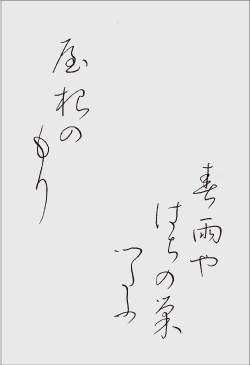 春雨や
はちの巣
つたふ
屋根の
もり